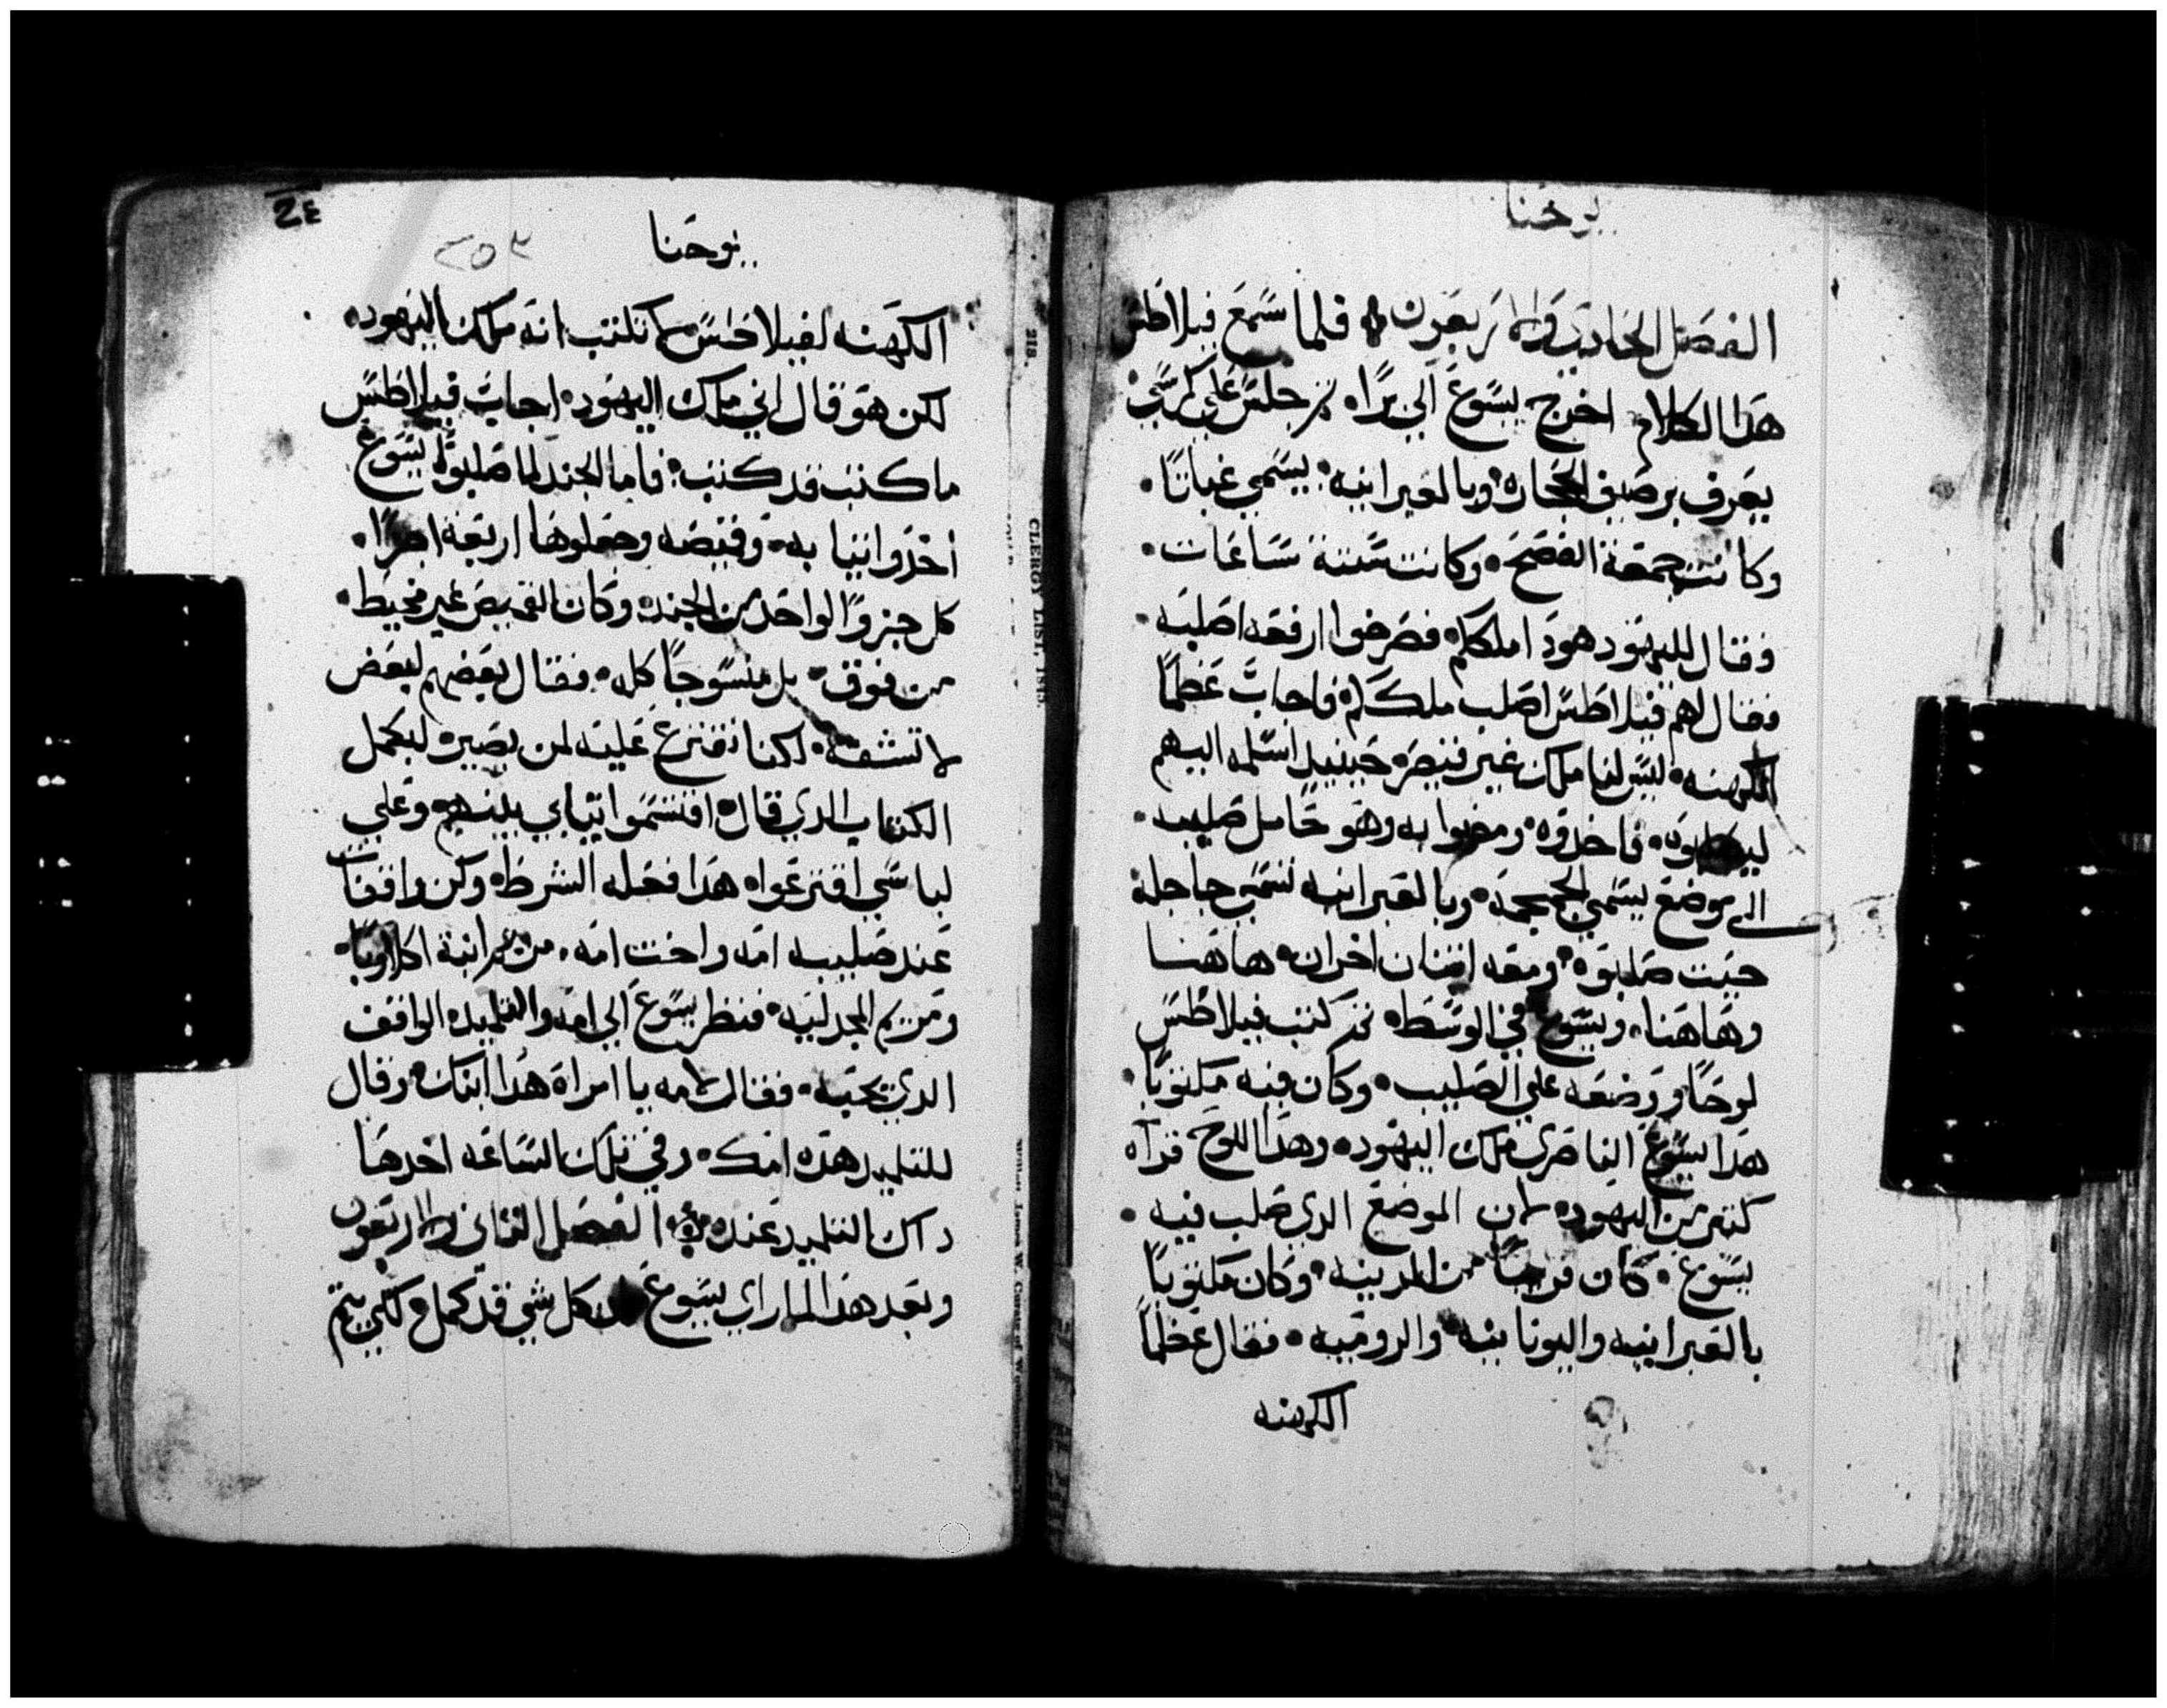 يوحنا
الفصل الحادي والاربعون فلما سمع فيلاطس
هذا الكلام اخرج يسوع الي برا. ثم جلس علي كرسي
يعرف برصيف الحجاره وبالعبرانيه يسمي غباتا.
وكانت جمعة الفصح. وكانت ستة ساعات.
وقال لليهود هودا ملككم فصرخوا ارفعه اصلبه.
فقال لهم فيلاطس اصلب ملككم فاجاب عظما
الكهنه. ليس لنا ملك غير قيصر. حينيذ اسلمه اليهم
ليصلبوه. فاخذوه ومضوا به وهو حامل صليبه.
الي موضع يسمي الجمجمه. وبالعبرانيه تسمي جاجله
حيت صلبوه ومعه اتنان اخران هاهنا
وهاهنا. ويسوع في الوسط. ثم كتب فيلاطس
لوحا ووضعه علي الصليب. وكان فيه مكتوبا.
هذا يسوع الناصري ملك اليهود. وهذا اللوح قراه
كتير من اليهود. لان الموضع الذي صلب فيه.
يسوع. كان قريبا من المدينه. وكان مكتوبا
بالعبرانيه واليونانيه والروميه. فقال عظما
الكهنه
24
يوحنا
٢٥٣
الكهنه لفيلاطس لا تكتب انه ملك اليهود.
لكن هو قال اني ملك اليهود. اجاب فيلاطس
ما كتبت قد كتبت. فاما الجند لما صلبوا يسوع
اخدوا تيابه. وقميصه وجعلوها اربعه اجزا.
كل جزوا لواحد من الجند. وكان القميص غير مخيط.
من فوق. بل منسوجا كله. فقال بعضهم لبعض
لا تشقه. لكنا نقترع عليه لمن يصير. ليكمل
الكتاب الدي قال اقتسموا تيابي بينهم. وعلي
لباسي اقترعوا. هذا فعله الشرط. وكن واقفات
عند صليبه امه واخت امه. مريم ابنة اكلاوبا.
ومريم المجدليه. فنظر يسوع الي امه والتلميد الواقف
الدي يحبه. فقال لامه يا امراه هذا ابنك. وقال
للتلميد هده امك. وفي تلك الساعه اخدها
داك التلميد عنده الفصل التاني والاربعون
وبعد هذا لما راي يسوع ان كل شي قد كمل ولكي يتم
218.
CLERGY LIST, 1845.